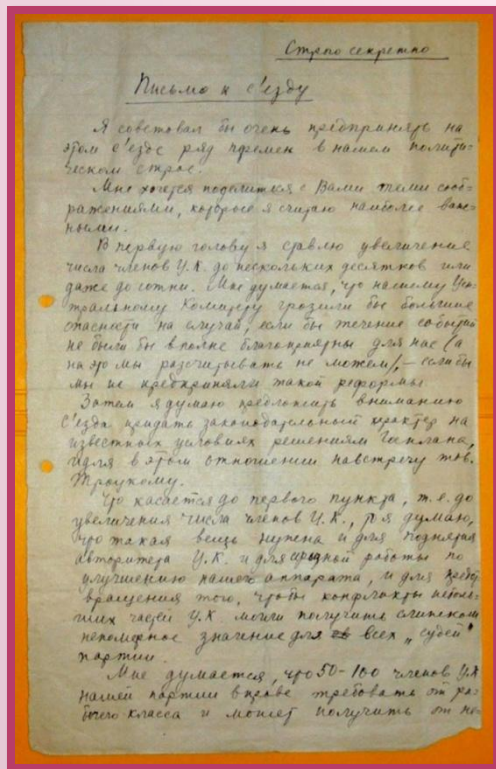 Строго секретно
Письмо к с'езду
Я советовал бы очень предпринять на
этом с'езде ряд перемен в нашем полити-
ческом строе.
Мне хочется поделиться с Вами теми сооб-
ражениями, которые я считаю наиболее важ-
ными.
В первую голову я ставлю увеличение
числа членов Ц.К. до нескольких десятков или
даже до сотни. Мне думается, что нашему Цен-
тральному Комитету грозили бы большие
опасности на случай, если бы течение событий
не были бы вполне благоприятны для нас (а
на это мы рассчитывать не можем), – если бы
мы не предприняли такой реформы.
Затем я думаю предложить вниманию
с'езда придать законодательный характер на
известных условиях решениям Госплана,
идя в этом отношении навстречу тов.
Троцкому.
Что касается до первого пункта, т.е. до
увеличения числа членов Ц.К., то я думаю,
что такая вещь нужна и для поднятия
авторитета Ц.К. и для работы по
улучшению нашего аппарата, и для предот-
вращения того, чтобы конфликты неболь-
ших частей Ц.К. могли получить слишком
непомерное значение для всех „судеб"
партии.
Мне думается, что 50-100 членов Ц.К.
наша партия вправе требовать от ра-
бочего класса и может получить от не-